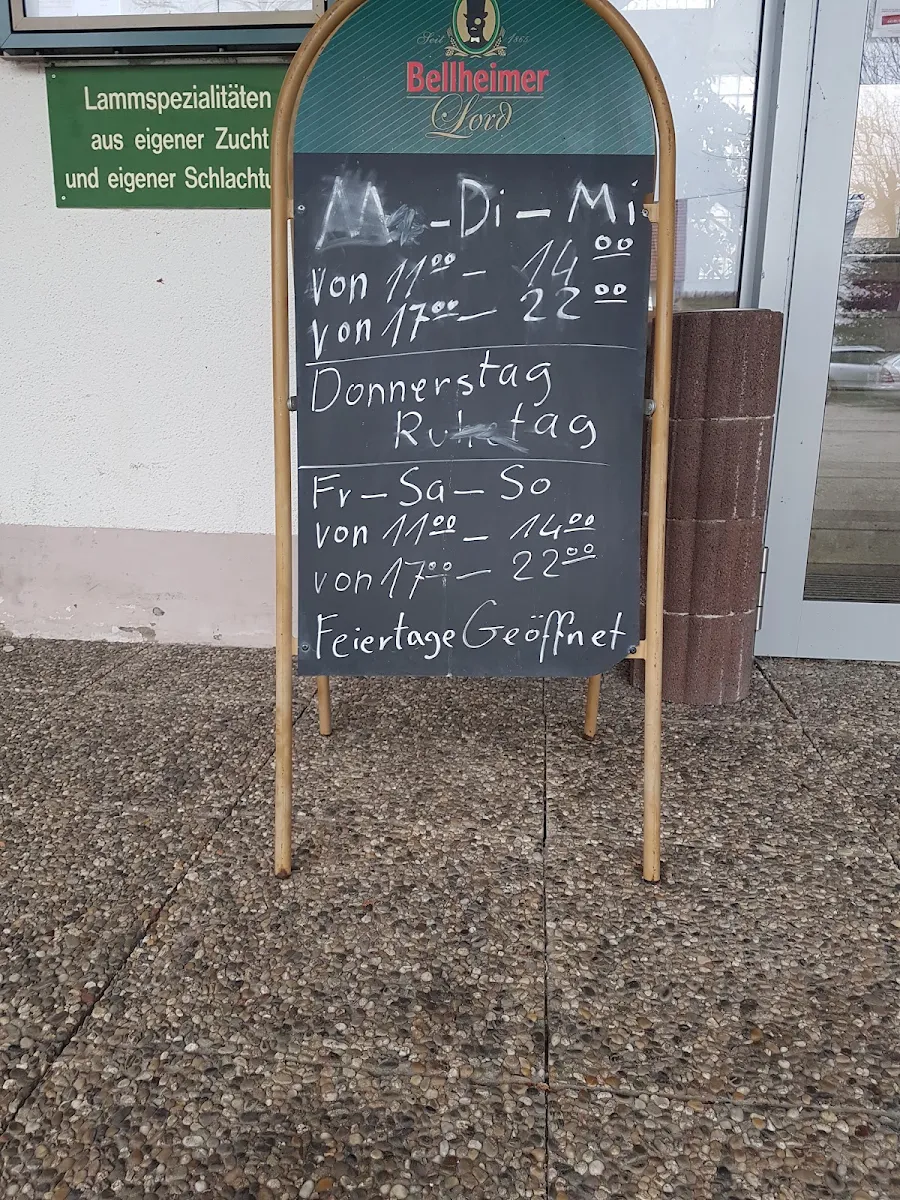 Lammspezialitäten
aus eigener Zucht
und eigener Schlachtu
Seit 1865
Bellheimer
Lord
Mo - Di - Mi
von 11⁰⁰ - 14⁰⁰
von 17⁰⁰ - 22⁰⁰
Donnerstag
Ruhetag
Fr - Sa - So
von 11⁰⁰ - 14⁰⁰
von 17⁰⁰ - 22⁰⁰
Feiertage Geöffnet